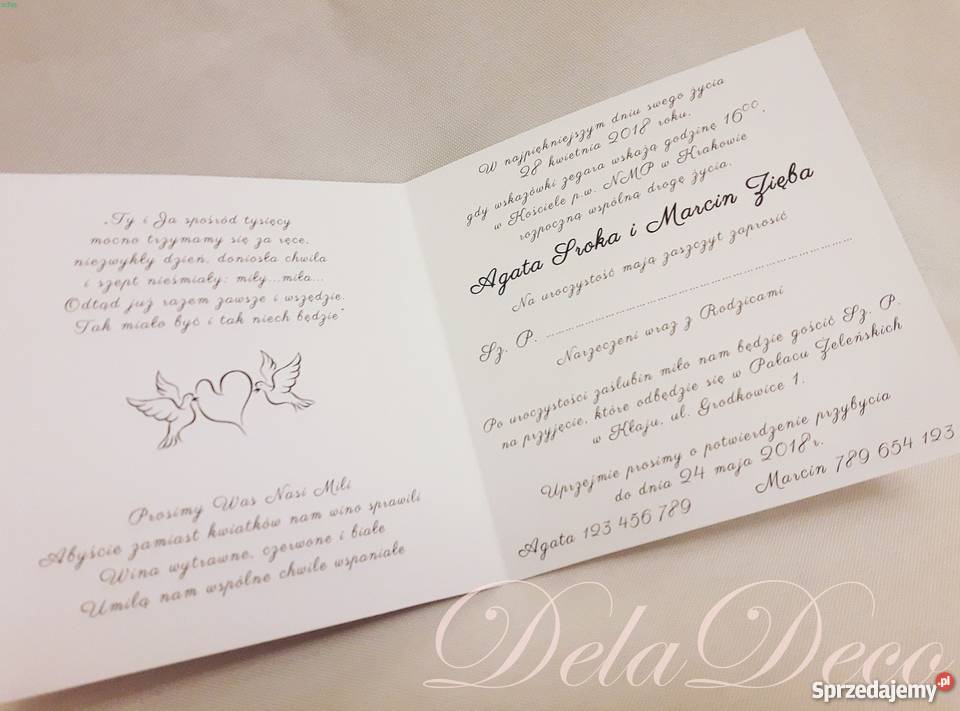 „Ty i Ja spośród tysięcy
mocno trzymamy się za ręce,
niezwykły dzień, doniosła chwila
i szept nieśmiały: miły...miła...
Odtąd już razem zawsze i wszędzie.
Tak miało być i tak niech będzie”
Prosimy Was Nasi Mili
Abyście zamiast kwiatków nam wino sprawili
Wina wytrawne, czerwone i białe
Umilą nam wspólne chwile wspaniałe
W najpiękniejszym dniu swego życia
28 kwietnia 2018 roku,
gdy wskazówki zegara wskażą godzinę 16⁰⁰,
w Kościele p.w. NMP w Krakowie
rozpoczną wspólną drogę życia,
Agata Sroka i Marcin Zięba
Na uroczystość mają zaszczyt zaprosić
Sz. P. ........................................................
Narzeczeni wraz z Rodzicami
Po uroczystości zaślubin miło nam będzie gościć Sz. P.
na przyjęcie, które odbędzie się w Pałacu Żeleńskich
w Kłaju, ul. Grodkowice 1.
Uprzejmie prosimy o potwierdzenie przybycia
do dnia 24 maja 2018r.
Agata 123 456 789 Marcin 789 654 123
DelaDeco
Sprzedajemy.pl